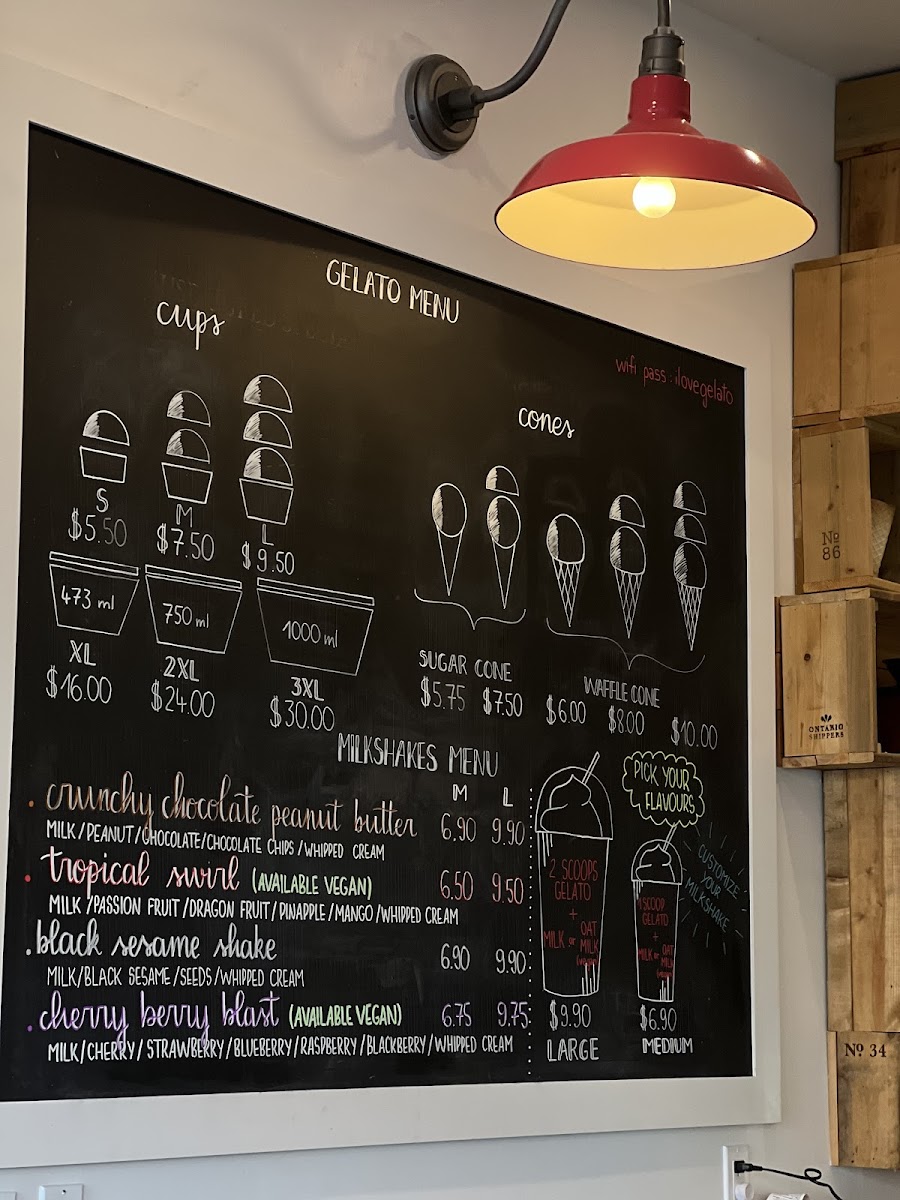 GELATO MENU
cups
wifi pass: ilovegelato
cones
S
M
L
$5.50
$7.50
$9.50
473 ml
750 ml
1000 ml
XL
2XL
3XL
$16.00
$24.00
$30.00
SUGAR CONE
$5.75 $7.50
WAFFLE CONE
$6.00 $8.00 $10.00
MILKSHAKES MENU
M L
. crunchy chocolate peanut butter 6.90 9.90
MILK/PEANUT/CHOCOLATE/CHOCOLATE CHIPS/WHIPPED CREAM
. tropical swirl (AVAILABLE VEGAN) 6.50 9.50
MILK/PASSION FRUIT/DRAGON FRUIT/PINAPPLE/MANGO/WHIPPED CREAM
. black sesame shake 6.90 9.90
MILK/BLACK SESAME/SEEDS/WHIPPED CREAM
. cherry berry blast (AVAILABLE VEGAN) 6.75 9.75
MILK/CHERRY/STRAWBERRY/BLUEBERRY/RASPBERRY/BLACKBERRY/WHIPPED CREAM
PICK YOUR
FLAVOURS
CUSTOMIZE
YOUR
MILKSHAKE
2 SCOOPS
GELATO
+
MILK or OAT
MILK
(vegan)
$9.90
LARGE
1 SCOOP
GELATO
+
MILK or OAT
MILK
(vegan)
$6.90
MEDIUM
Nº
86
ONTARIO
SHIPPERS
Nº 34